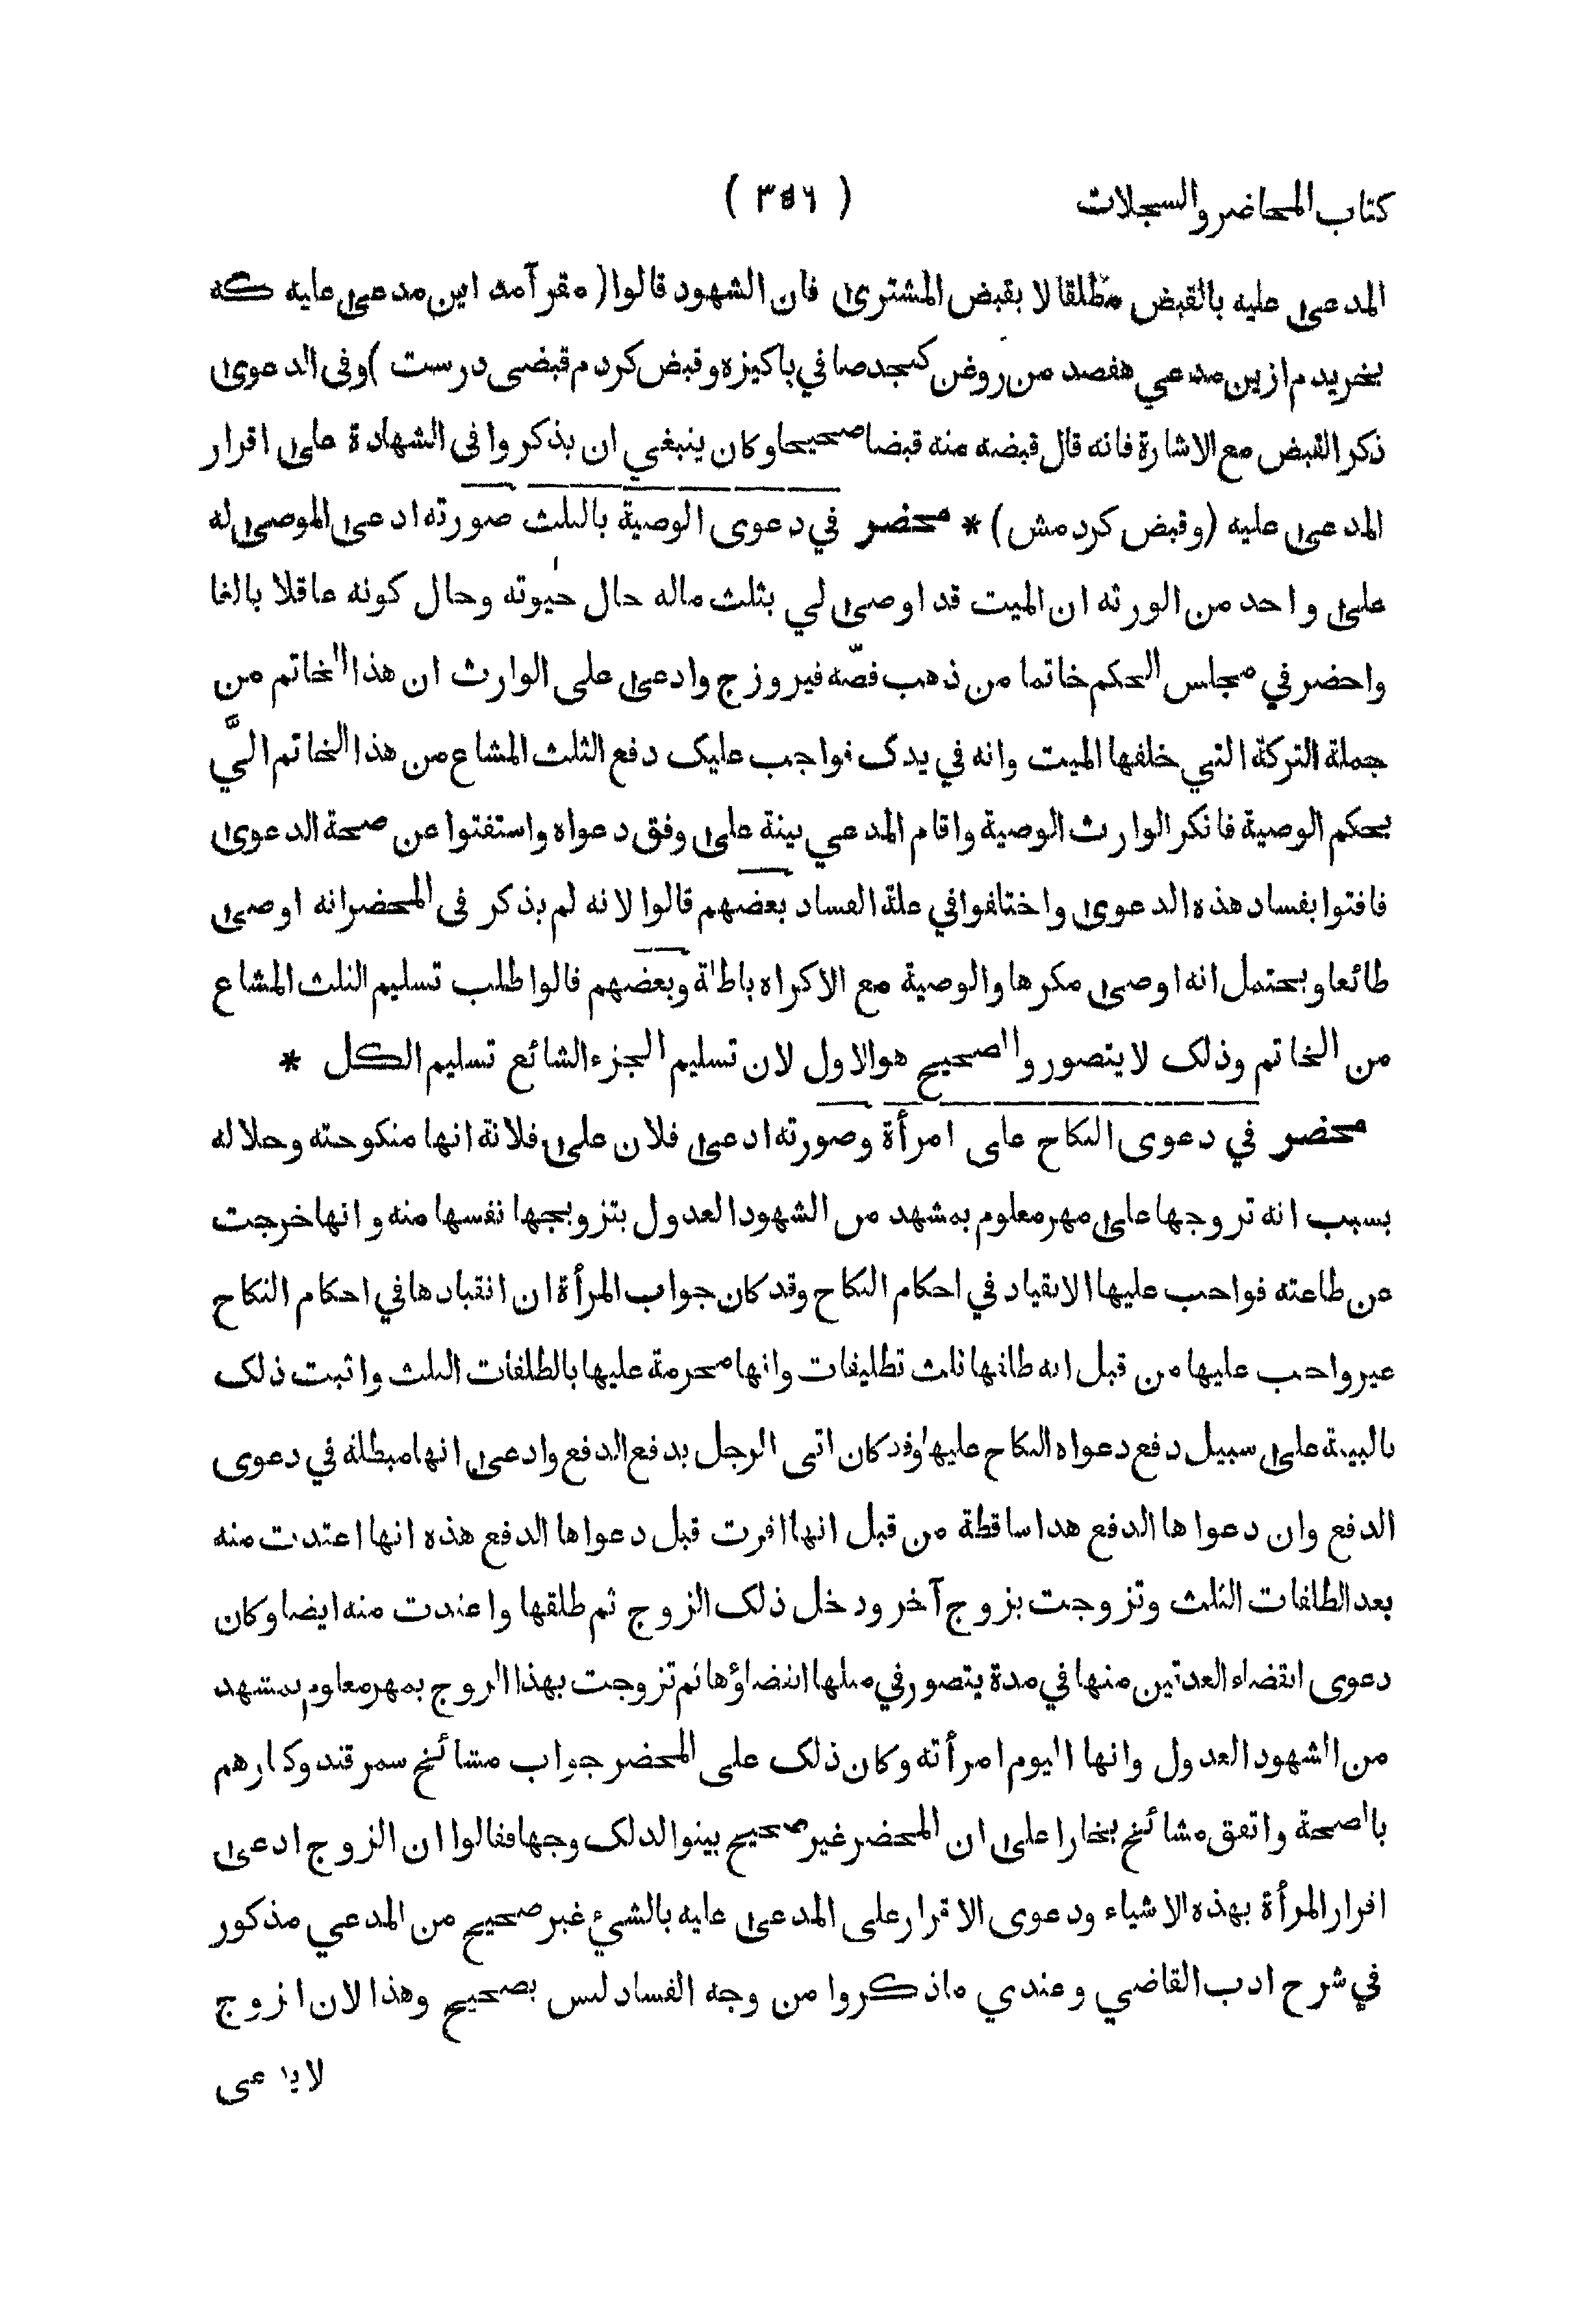 كتاب المحاضر والسجلات ( ٣٥٦ )
المدعى عليه بالقبض مطلقا لا بقبض المشترى فان الشهود قالوا ( مقر آمد اين مدعى عليه كه
بخريدم ازين مدعي هفصد من روغن كنجد صافي پاكيزه و قبض كردم قبضى درست ) وفى الدعوى
ذكر القبض مع الاشارة فانه قال قبضه منه قبضا صحيحا وكان ينبغي ان يذكروا فى الشهادة على اقرار
المدعى عليه ( وقبض كردمش ) * محضر في دعوى الوصية بالثلث صورته ادعى الموصى له
على واحد من الورثه ان الميت قد اوصى لي بثلث ماله حال حيوته وحال كونه عاقلا بالغا
واحضر في مجلس الحكم خاتما من ذهب فصّه فيروزج وادعى على الوارث ان هذا الخاتم من
جملة التركة التي خلفها الميت وانه في يدك فواجب عليك دفع الثلث المشاع من هذا الخاتم اليَّ
بحكم الوصية فانكر الوارث الوصية واقام المدعي بينة على وفق دعواه واستفتوا عن صحة الدعوى
فافتوا بفساد هذه الدعوى واختلفوا في علة الفساد بعضهم قالوا لانه لم يذكر فى المحضر انه اوصى
طائعا ويحتمل انه اوصى مكرها والوصية مع الاكراه باطلة وبعضهم قالوا طلب تسليم الثلث المشاع
من الخاتم وذلك لا يتصور والصحيح هو الاول لان تسليم الجزء الشائع تسليم الكل *
محضر في دعوى النكاح على امرأة وصورته ادعى فلان على فلانة انها منكوحته وحلاله
بسبب انه تزوجها على مهر معلوم بمشهد من الشهود العدول بتزويجها نفسها منه وانها خرجت
عن طاعته فواجب عليها الانقياد في احكام النكاح وقد كان جواب المرأة ان انقيادها في احكام النكاح
غير واجب عليها من قبل انه طلقها ثلث تطليقات وانها محرمة عليها بالطلقات الثلث واثبت ذلك
بالبينة على سبيل دفع دعواه النكاح عليها وقد كان اتى الرجل بدفع الدفع وادعى انها مبطلة في دعوى
الدفع وان دعواها الدفع هذا ساقطة من قبل انها اقرت قبل دعواها الدفع هذه انها اعتدت منه
بعد الطلقات الثلث وتزوجت بزوج آخر ودخل ذلك الزوج ثم طلقها واعتدت منه ايضا وكان
دعوى انقضاء العدتين منها في مدة يتصور في مثلها انقضاؤها ثم تزوجت بهذا الزوج بمهر معلوم بمشهد
من الشهود العدول وانها اليوم امرأته وكان ذلك على المحضر جواب مشائخ سمرقند وكبارهم
بالصحة واتفق مشائخ بخارا على ان المحضر غير صحيح بينوا لذلك وجها فقالوا ان الزوج ادعى
اقرار المرأة بهذه الاشياء ودعوى الاقرار على المدعى عليه بالشيء غير صحيح من المدعي مذكور
في شرح ادب القاضي وعندي ماذكروا من وجه الفساد ليس بصحيح وهذا لان الزوج
لا يدعى